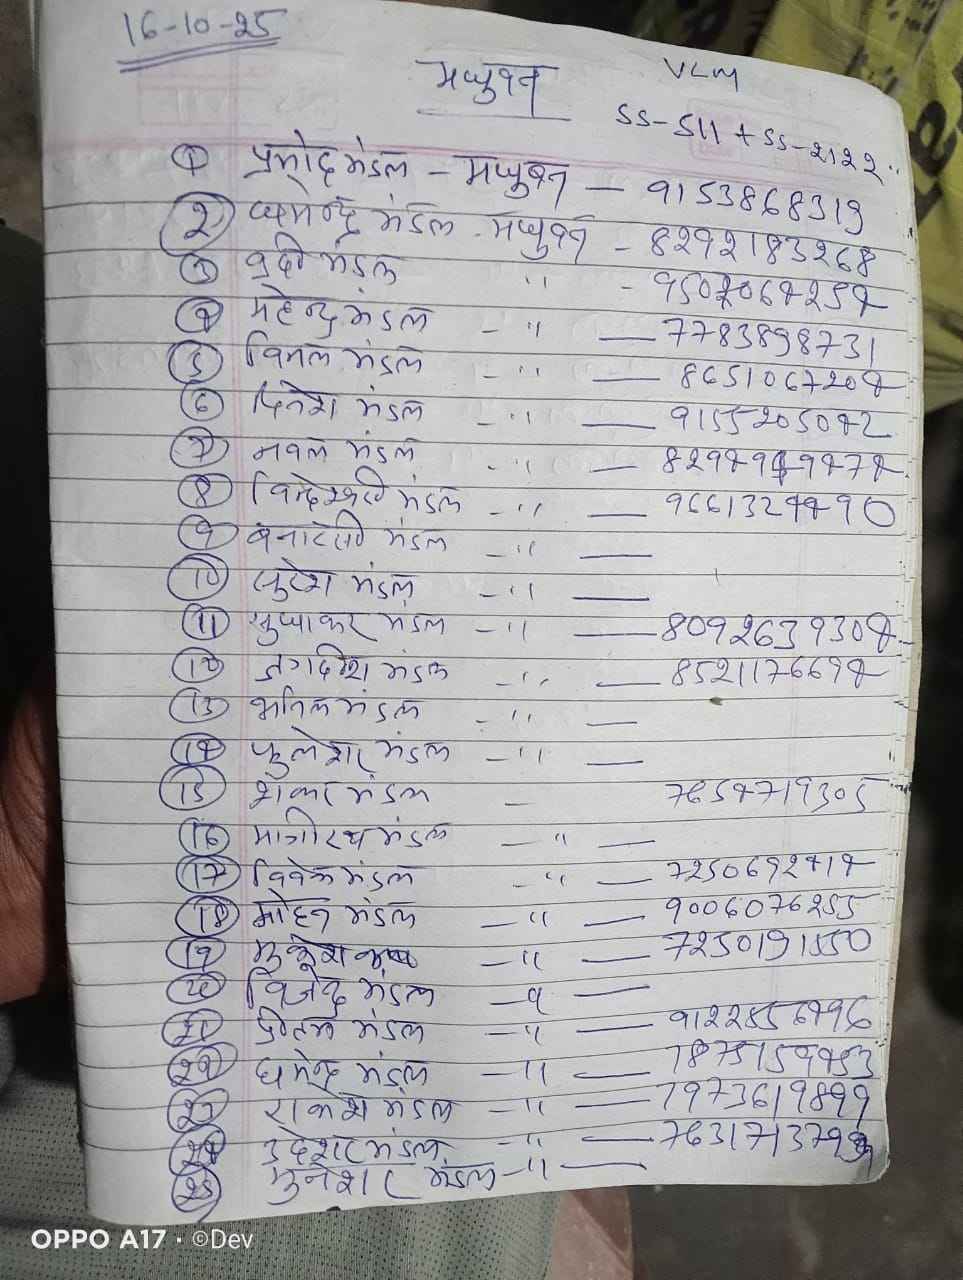 16-10-25
मधुवन
VLM
SS-511 + SS-2122
① प्रमोद मंडल - मधुवन - 9153868319
② धमेन्द्र मंडल - मधुवन - 8292183268
③ प्रदीप मंडल " - 9507064254
④ महेन्द्र मंडल - " - 7783898731
⑤ विमल मंडल - " - 8651067204
⑥ दिनेश मंडल - " - 9155205042
⑦ नवल मंडल - " -
⑧ विन्देश्वरी मंडल - " -
⑨ बनारसी मंडल - " -
⑩ सुरेश मंडल - " -
⑪ सुधाकर मंडल - " - 8092639304
⑫ जगदिश मंडल - " - 8521176694
⑬ अनिल मंडल - " -
⑭ फुलेशर मंडल - " -
⑮ शंकर मंडल - 7654719305
⑯ भागीरथ मंडल - " -
⑰ विवेक मंडल - " - 7250692414
⑱ मोहन मंडल - " - 9006076255
⑲ मुकेश - " - 7250191550
⑳ विजेन्द्र मंडल - " -
㉑ प्रीतम मंडल - " - 9122856496
㉒ धमेन्द्र मंडल - " - 7875159453
㉓ राकेश मंडल - " - 7973619899
㉔ उदेशर मंडल - " -
㉕ मुनेशर मंडल - " -
OPPO A17 · ©Dev